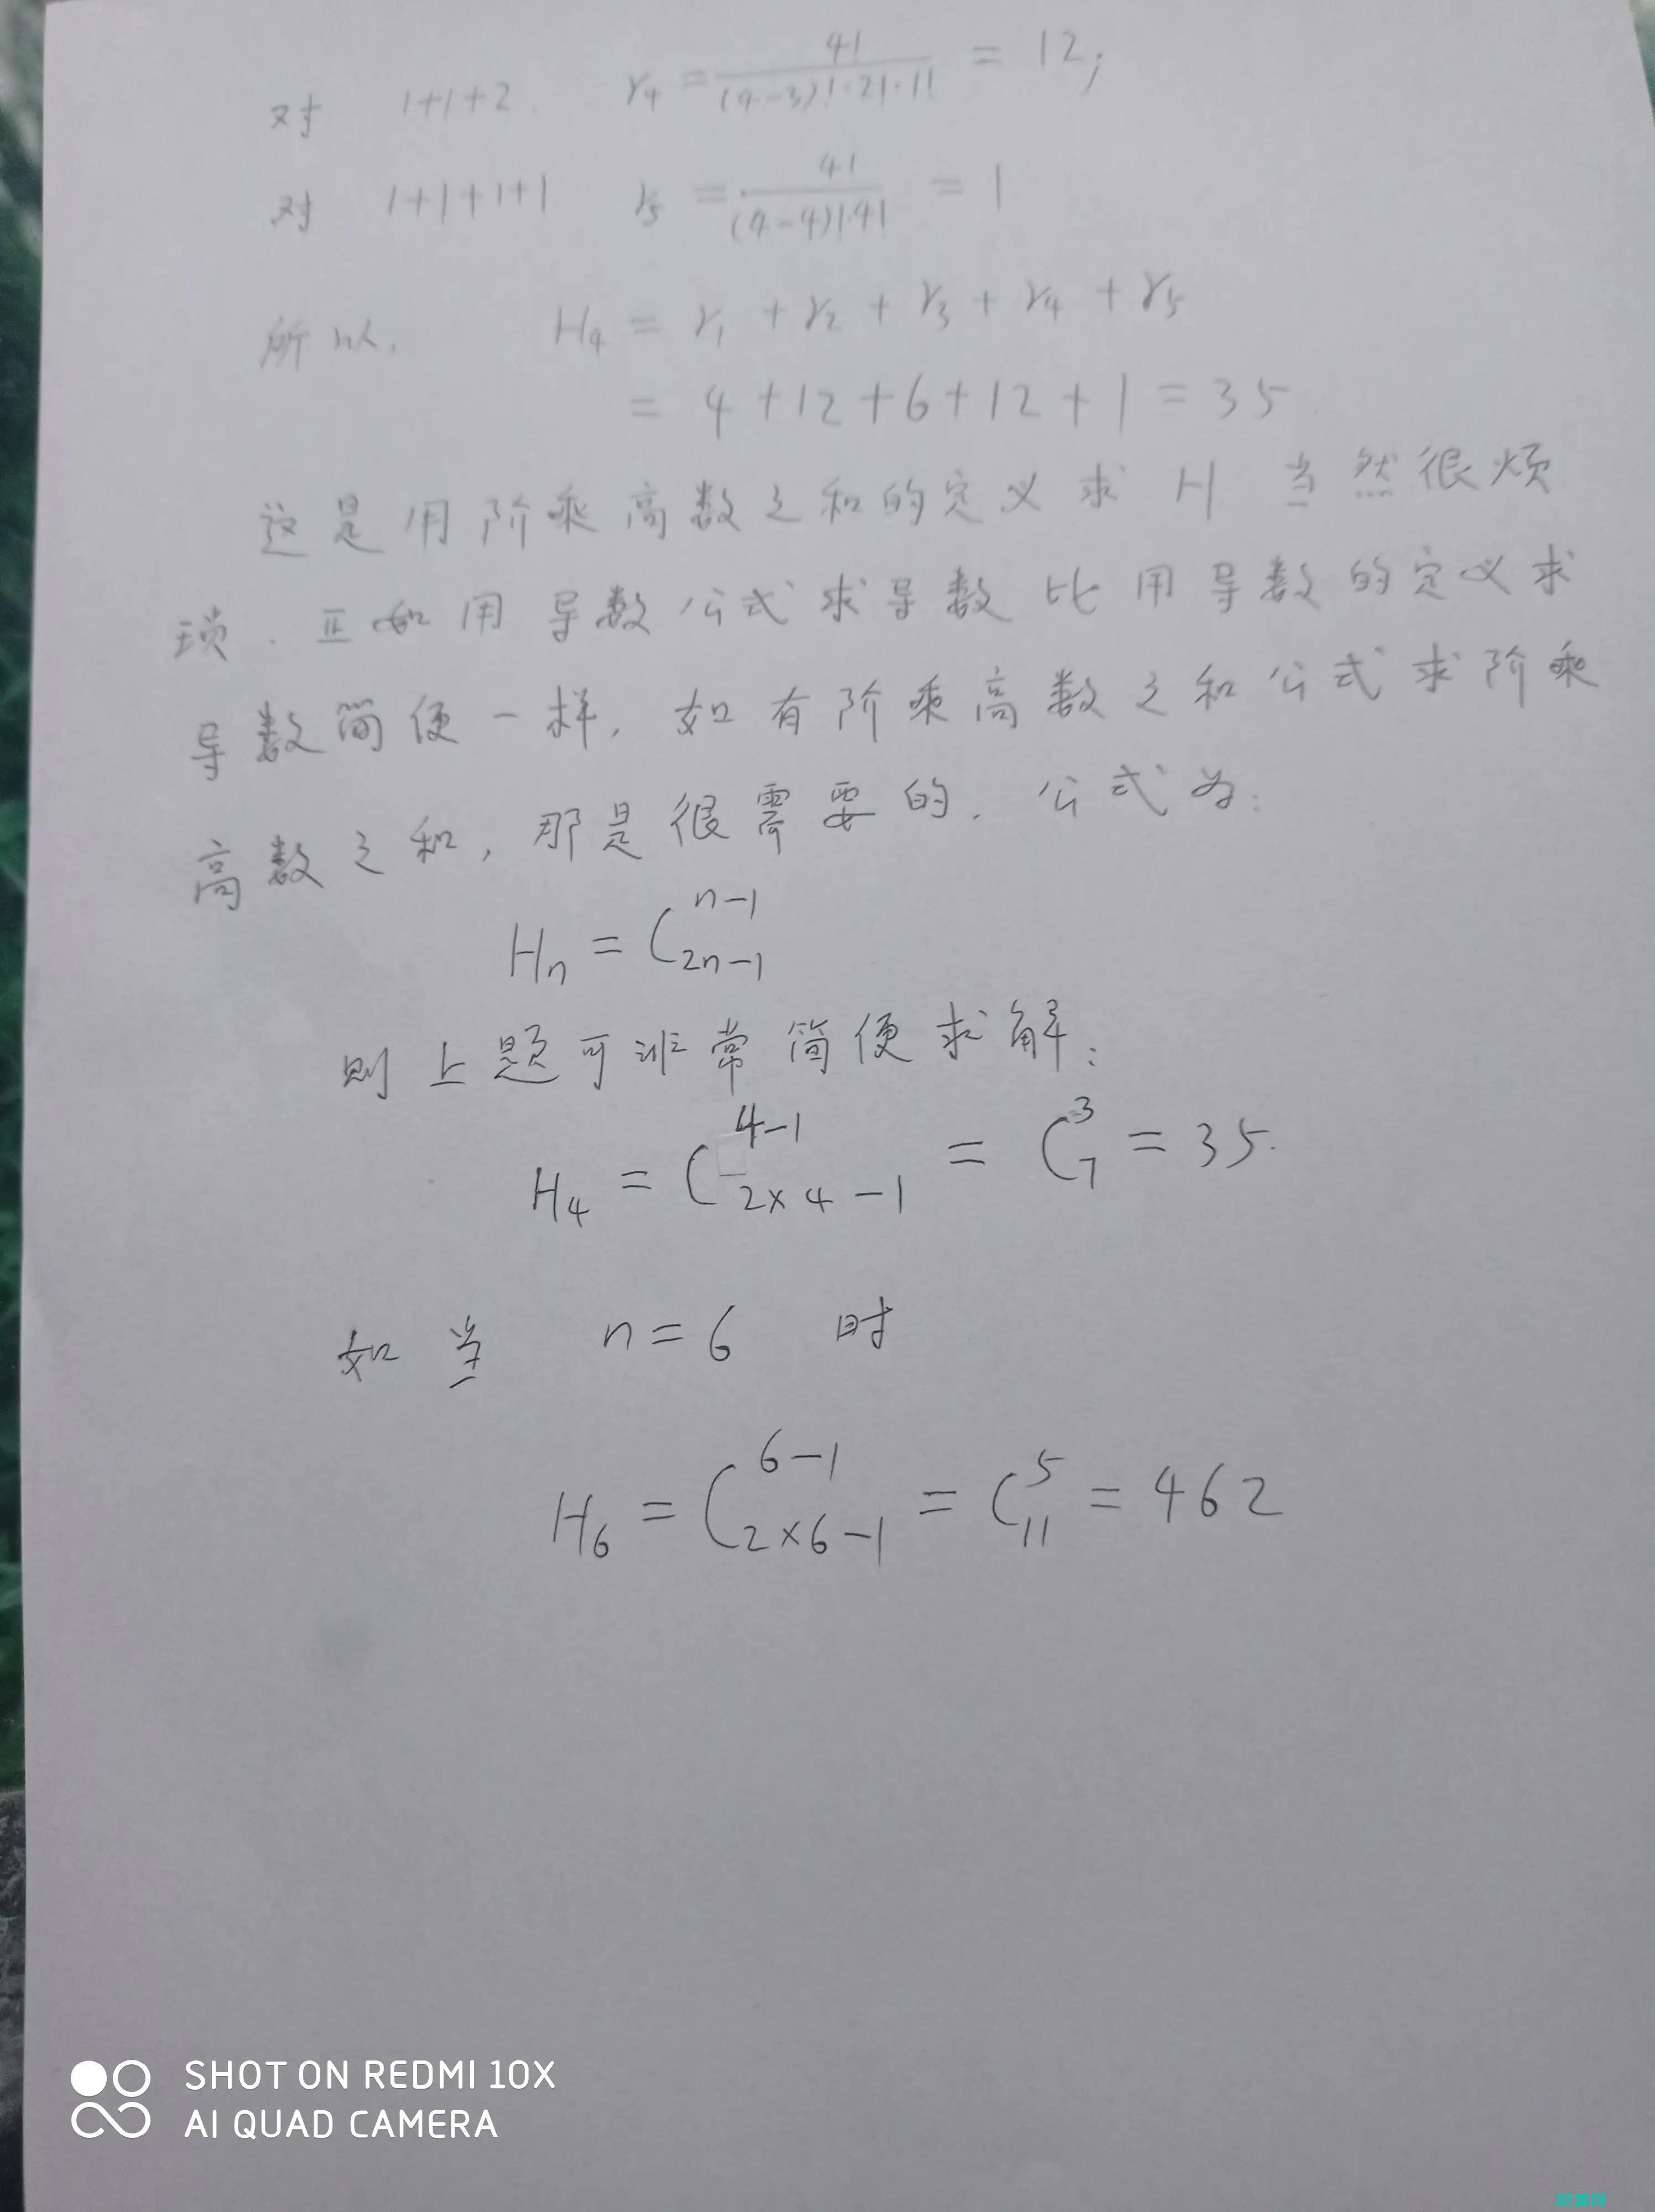 对 1+1+2. r₄ = 4!/((4-3)!·2!·1!) = 12;
对 1+1+1+1 r₅ = 4!/((4-4)!·4!) = 1
所以, H₄ = r₁ + r₂ + r₃ + r₄ + r₅
= 4+12+6+12+1=35.
这是用阶乘高数之和的定义求 H 当然很烦
琐.正如用导数公式求导数比用导数的定义求
导数简便一样,如有阶乘高数之和公式求阶乘
高数之和,那是很需要的.公式为:
Hₙ = C_{2n-1}^{n-1}
则上题可非常简便求解:
H₄ = C_{2×4-1}^{4-1} = C_7^3 = 35.
如当 n=6 时
H₆ = C_{2×6-1}^{6-1} = C_{11}^5 = 462
SHOT ON REDMI 10X
AI QUAD CAMERA